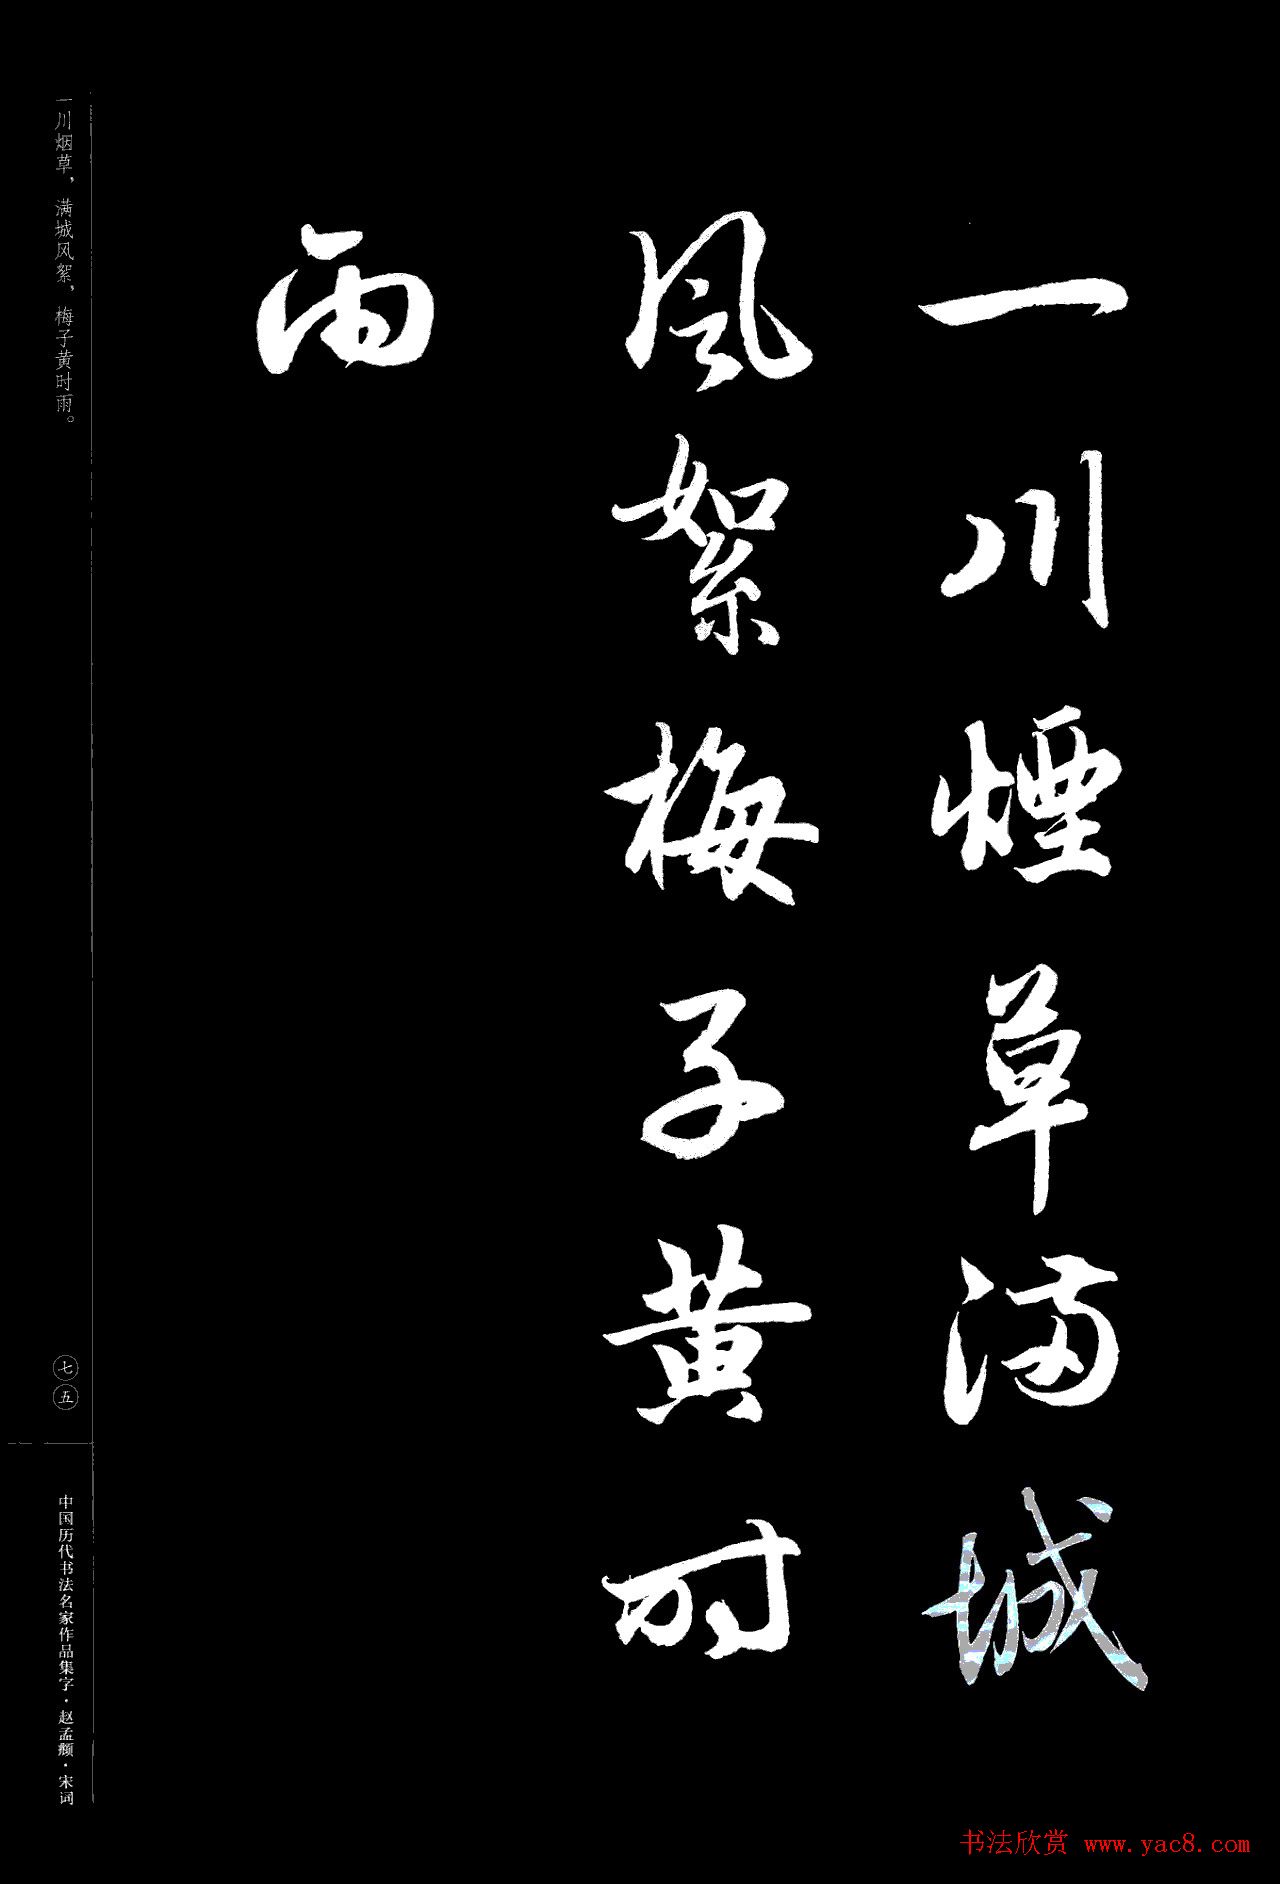 一川煙草滿城
風絮梅子黄时
雨
一川烟草，满城风絮，梅子黄时雨。
七五
中国历代书法名家作品集字·赵孟頫·宋词
书法欣赏 www.yac8.com